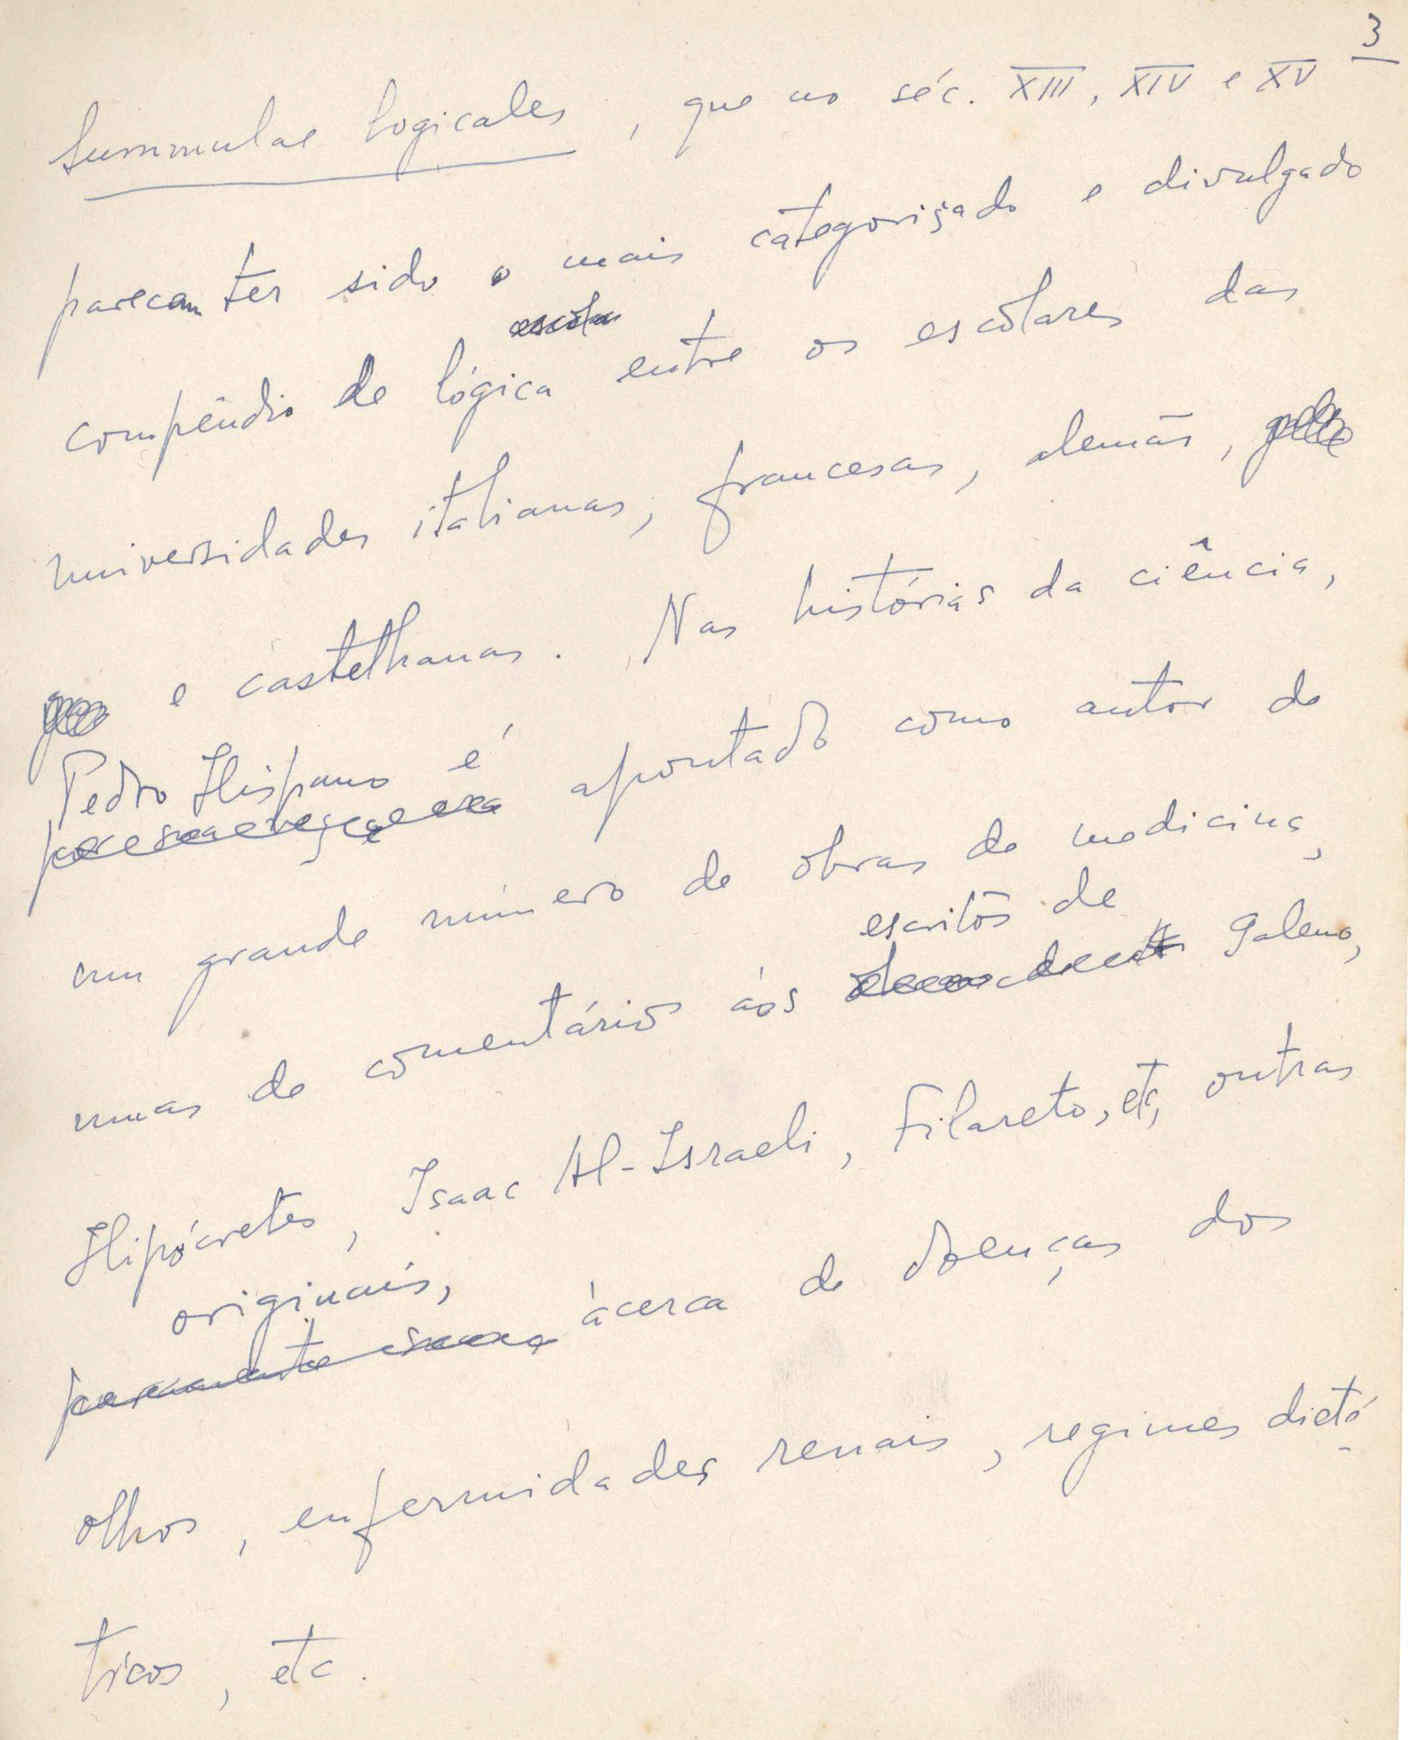 3
Summulae logicales, que no séc. XIII, XIV e XV
parecem ter sido o mais categorizado e divulgado
compêndio de lógica entre os escolares das
universidades italianas, francesas, alemãs,
e castelhanas. Nas histórias da ciência,
Pedro Hispano é apontado como autor de
um grande número de obras de medicina,
escritos de
umas de comentários aos Galeno,
Hipócrates, Isaac Al-Israeli, Filareto, etc, outras
originais,
àcerca de doenças dos
olhos, enfermidades renais, regimes dieté
ticos, etc.